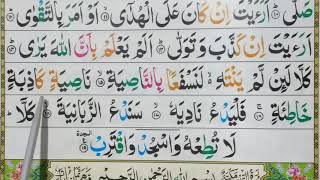 صَلّٰى ۝ اَرَءَيْتَ اِنْ كَانَ عَلَى الْهُدٰٓى ۝ اَوْ اَمَرَ بِالتَّقْوٰى ۝
اَرَءَيْتَ اِنْ كَذَّبَ وَ تَوَلّٰى ۝ اَلَمْ يَعْلَمْ بِاَنَّ اللّٰهَ يَرٰى ۝
كَلَّا لَئِنْ لَّمْ يَنْتَهِ ۙ لَنَسْفَعًۢا بِالنَّاصِيَةِ ۝ نَاصِيَةٍ كَاذِبَةٍ
خَاطِئَةٍ ۝ فَلْيَدْعُ نَادِيَهٗ ۝ سَنَدْعُ الزَّبَانِيَةَ ۝ كَلَّا ؕ
لَا تُطِعْهُ وَاسْجُدْ وَاقْتَرِبْ ۝ السجدة